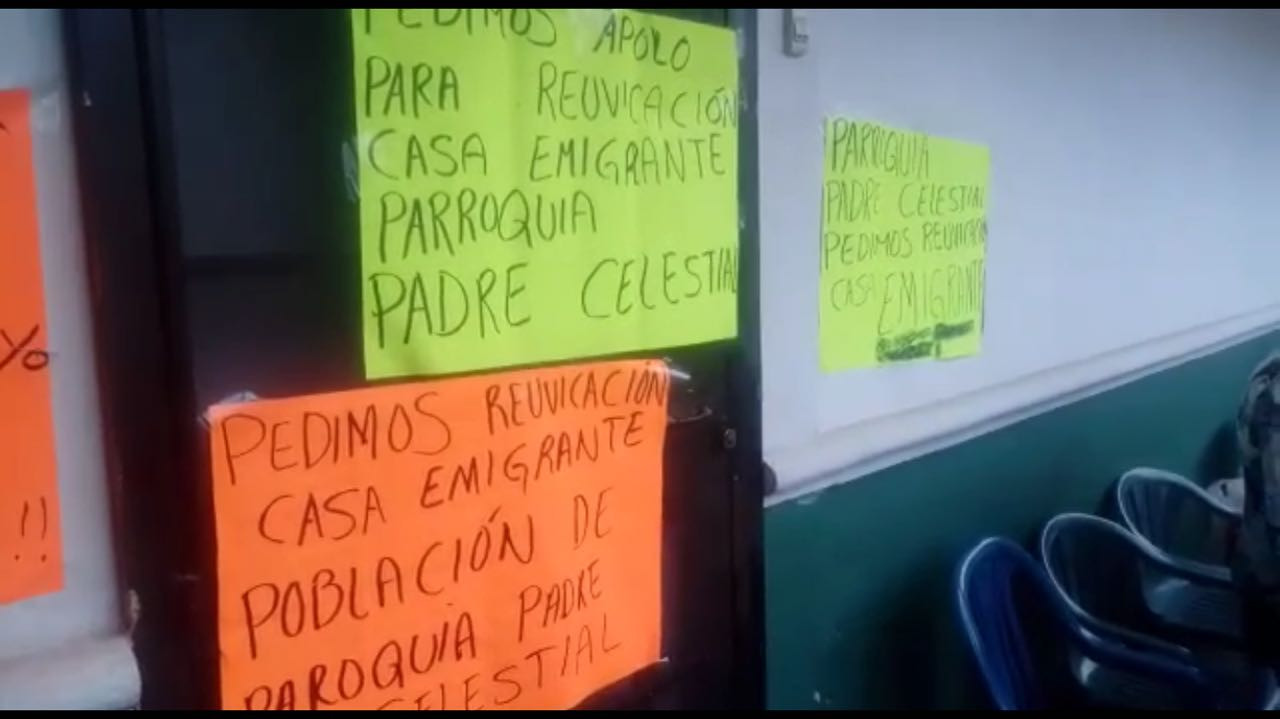 PEDIMOS APOLO
PARA REUVICACIÓN
CASA EMIGRANTE
PARROQUIA
PADRE CELESTIAL
PARROQUIA
PADRE CELESTIAL
PEDIMOS REUVICACIÓN
CASA EMIGRANTE
PEDIMOS REUVICACIÓN
CASA EMIGRANTE
POBLACIÓN DE
PAROQUIA PADRE
CELESTIAL
yo
!!